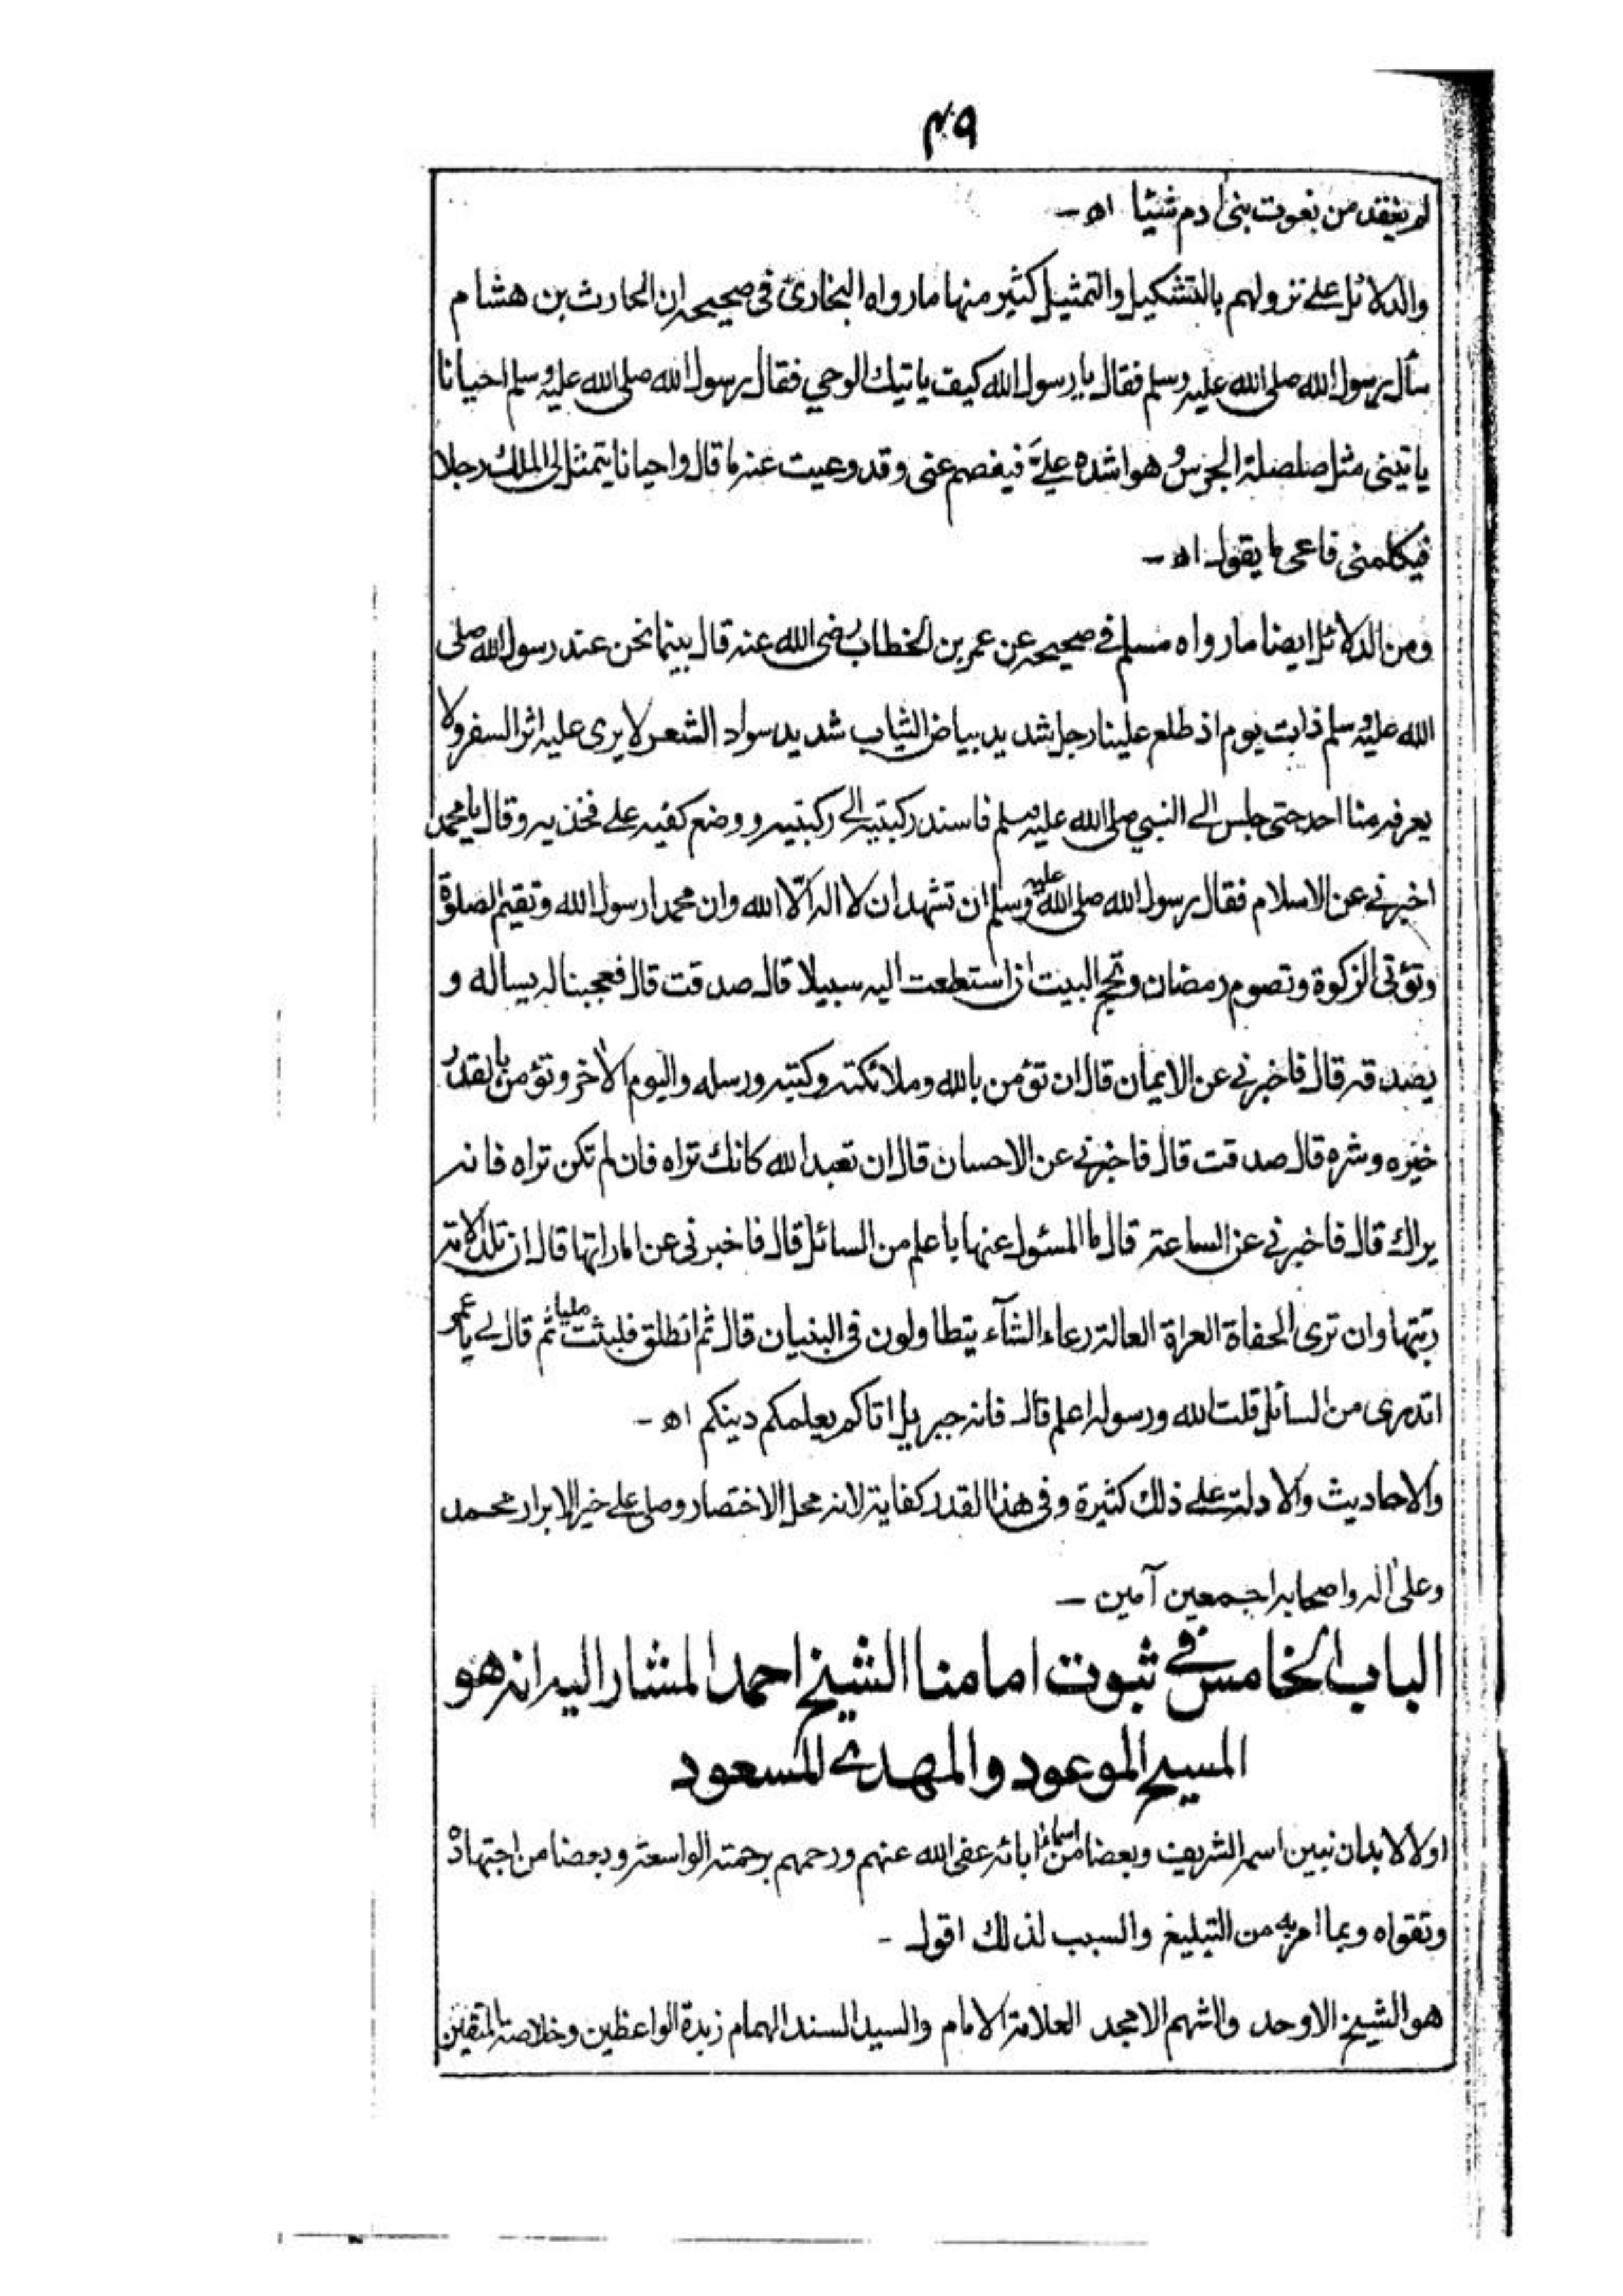 ٤٩
لم يفقد من نعوت بنى ادم شيئا اه -
والدلائل على نزولهم بالتشكيل والتمثيل كثير منها مارواه البخارى فى صحيحه ان الحارث بن هشام
سأل رسول الله صلى الله عليه وسلم فقال يا رسول الله كيف ياتيك الوحي فقال رسول الله صلى الله عليه وسلم احيانا
ياتينى مثل صلصلة الجرس وهو اشده عليَّ فيفصم عنى وقد وعيت عنه ما قال واحيانا يتمثل لى الملك رجلا
فيكلمنى فاعى ما يقول اه -
ومن الدلائل ايضا مارواه مسلم فى صحيحه عن عمر بن الخطاب رضى الله عنه قال بينما نحن عند رسول الله صلى
الله عليه وسلم ذات يوم اذ طلع علينا رجل شديد بياض الثياب شديد سواد الشعر لا يرى عليه اثر السفر ولا
يعرفه منا احد حتى جلس الى النبي صلى الله عليه وسلم فاسند ركبتيه الى ركبتيه ووضع كفيه على فخذيه وقال يا محمد
اخبرنى عن الاسلام فقال رسول الله صلى الله عليه وسلم ان تشهد ان لا اله الّا الله وان محمدا رسول الله وتقيم الصلوة
وتؤتى الزكوة وتصوم رمضان وتحج البيت ان استطعت اليه سبيلا قال صدقت قال فعجبنا له يساله و
يصدقه قال فاخبرنى عن الايمان قال ان تؤمن بالله وملائكته وكتبه ورسله واليوم الاخر وتؤمن بالقدر
خيره وشره قال صدقت قال فاخبرنى عن الاحسان قال ان تعبد الله كانك تراه فان لم تكن تراه فانه
يراك قال فاخبرنى عن الساعة قال ما المسئول عنها باعلم من السائل قال فاخبرنى عن اماراتها قال ان تلد الامة
ربتها وان ترى الحفاة العراة العالة رعاء الشآء يتطاولون فى البنيان قال ثم انطلق فلبثت مليا ثم قال لى يا عمر
اتدرى من السائل قلت الله ورسوله اعلم قال فانه جبريل اتاكم يعلمكم دينكم اه -
والاحاديث والادلة على ذلك كثيرة وفى هذا القدر كفاية لانه محل الاختصار وصلى على خير الابرار محمد
وعلى اله واصحابه اجمعين آمين -
الباب الخامس فى ثبوت امامنا الشيخ احمد المشار اليه انه هو
المسيح الموعود والمهدى المسعود
اولا لابد ان نبين اسمه الشريف وبعضا من اسماء ابائه عفى الله عنهم ورحمهم برحمته الواسعة وبعضا من اجتهاده
وتقواه وبما امر به من التبليغ والسبب لذلك اقول -
هو الشيخ الاوحد والشهم الامجد العلامة الامام والسيد السند الهمام زبدة الواعظين وخلاصة المتقين